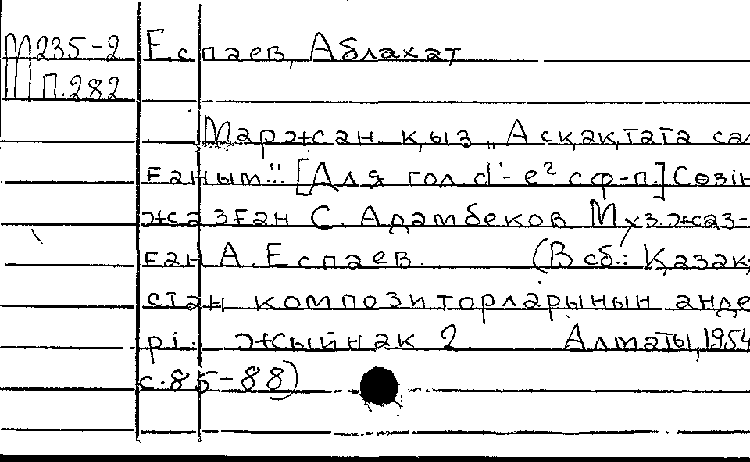 М235-2 Еспаев, Аблахат
П.282
Маржан қыз „Асқақтата сал
ғаным" [Для гол. d'-e² с ф-п.] Сөзін
жазған С. Адамбеков Муз. жаз-
ған А. Еспаев. (В сб.: Қазақ
стан композиторларынын анде
рі. жыйнак 2 Алматы, 1954
с.85-88)